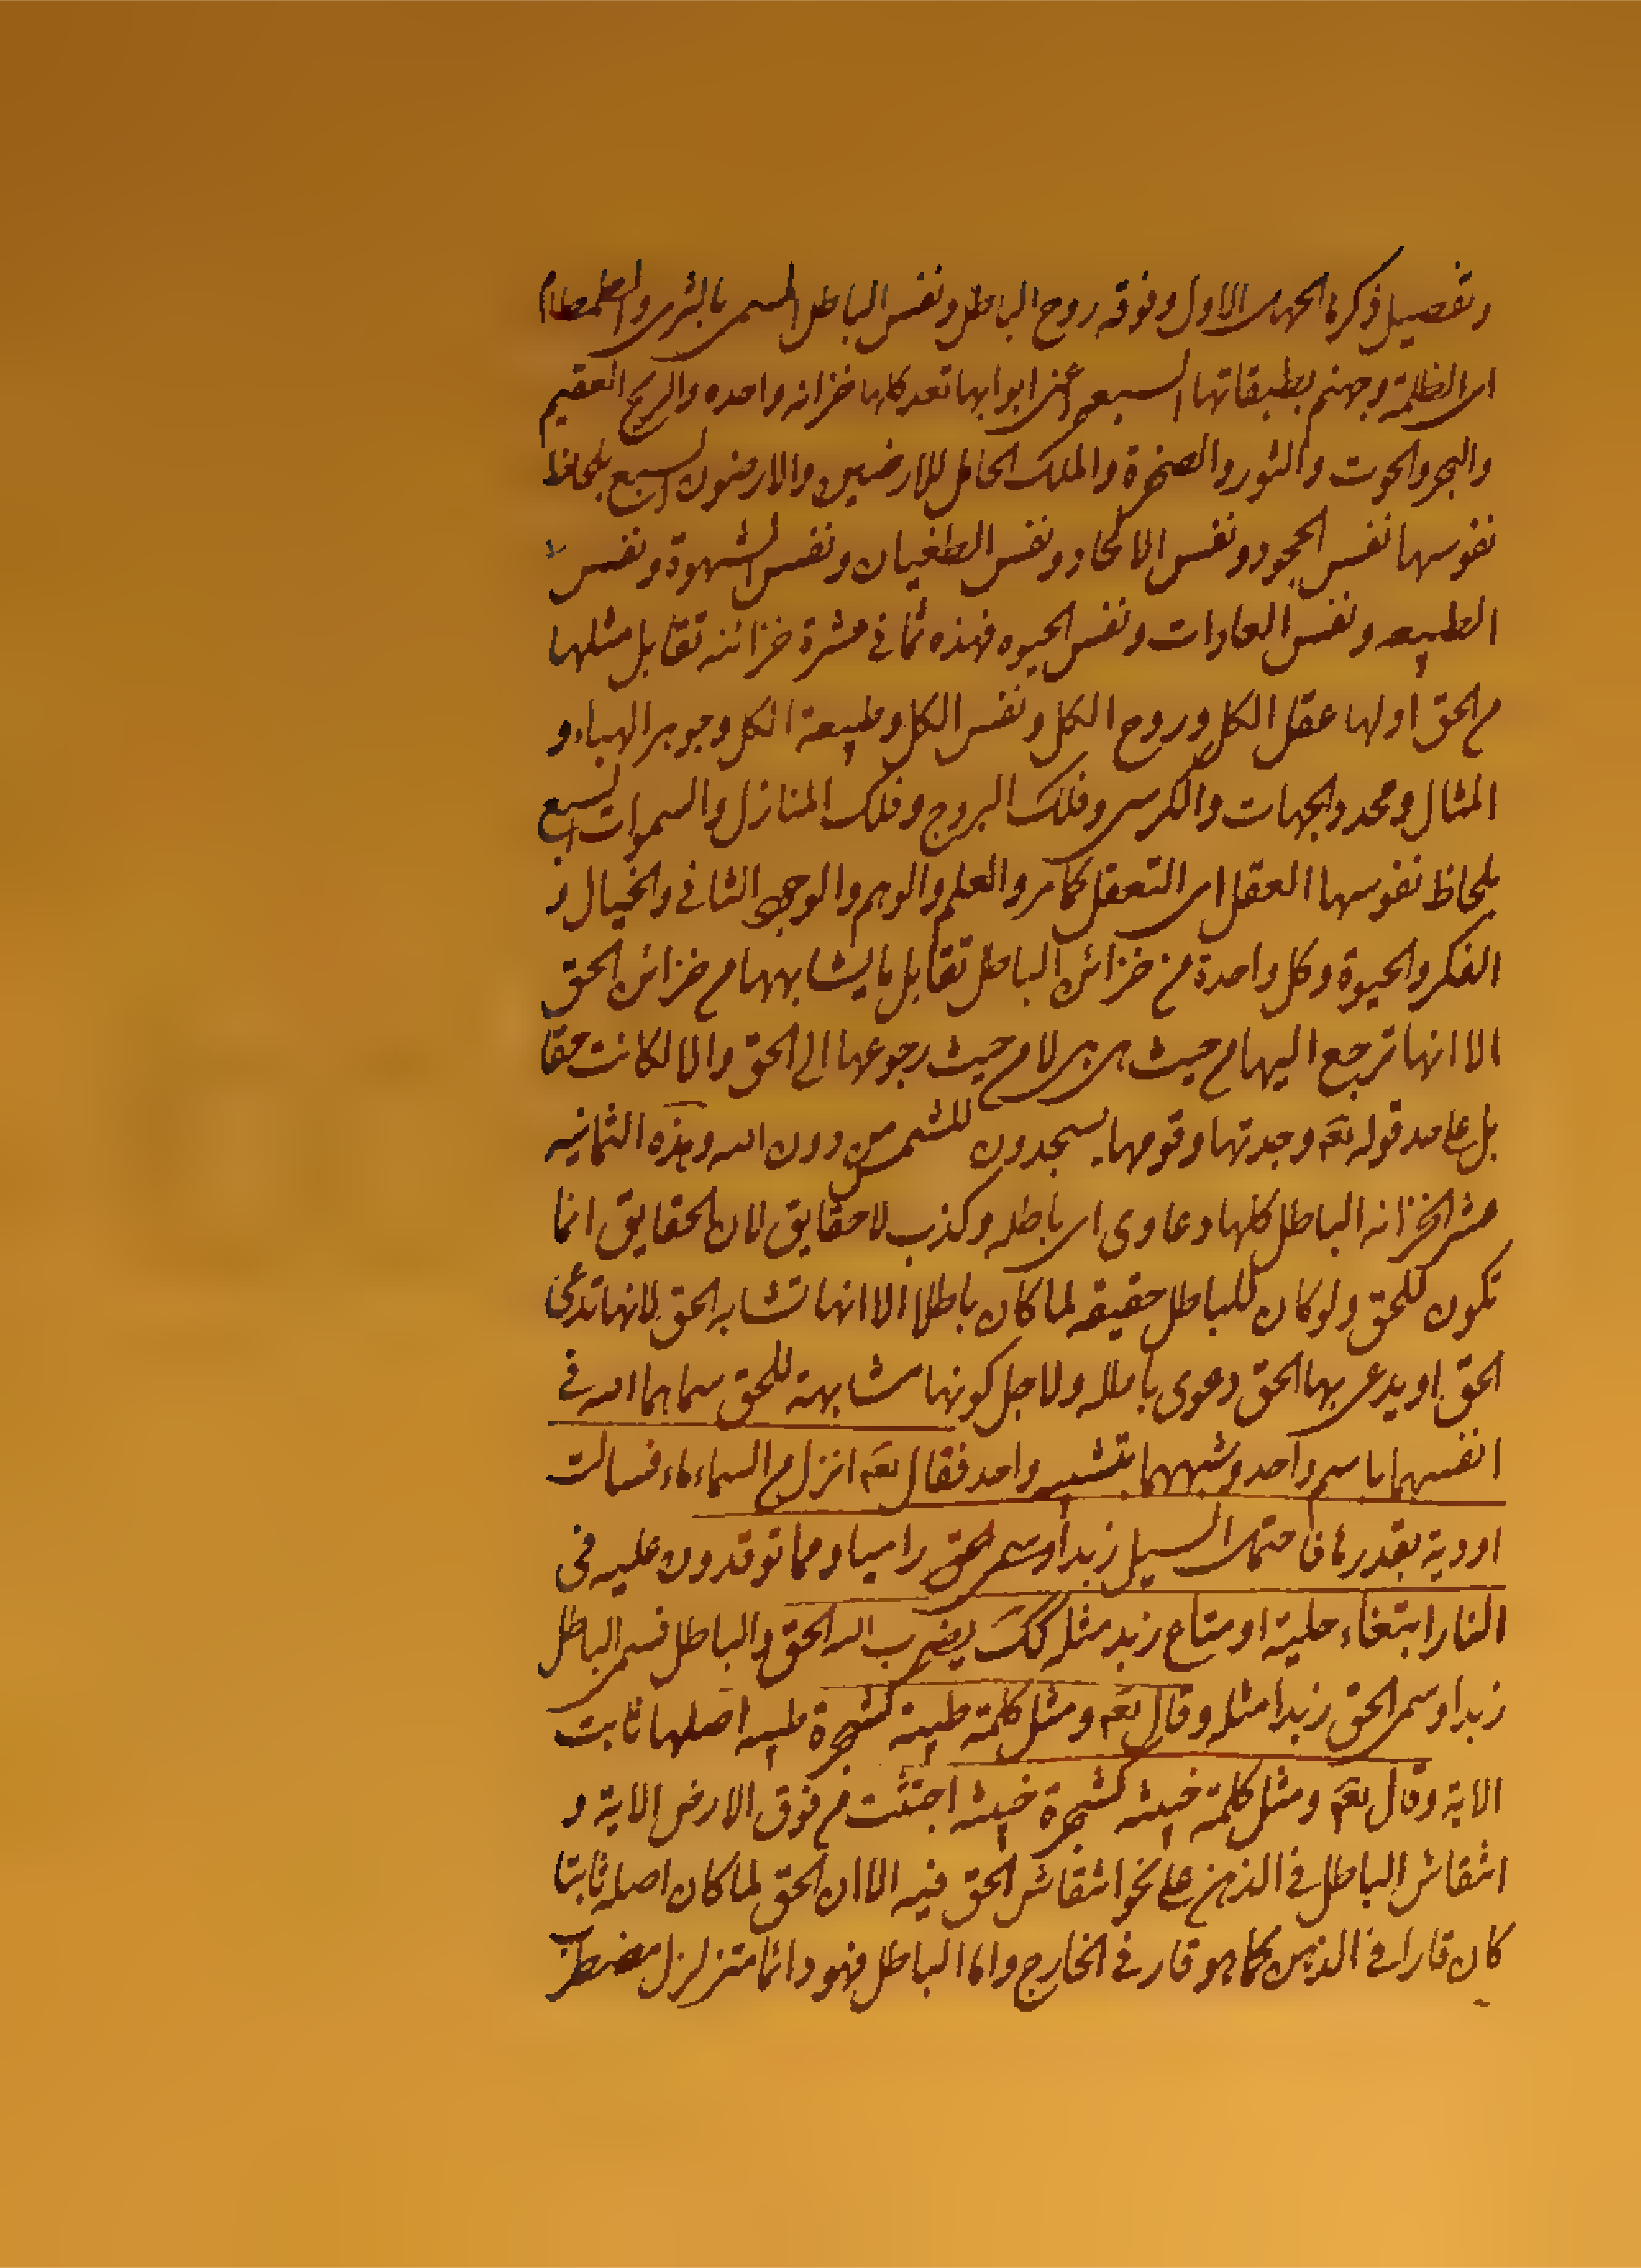 وتفصيل ذكرنا الجهل الاول وفوقه روح الباطل ونفس الباطل المسمى بالثرى والطمطام
اى الظلمة وجهنم بطبقاتها السبع اعنى ابوابها تعد كلها خزانه واحده والريح العقيم
والبحر والحوت والثور والصخرة والملك الحامل للارضين والارضون السبع بلحاظ
نفوسها نفس الجحود ونفس الالحاد ونفس الطغيان ونفس الشهوة ونفس
الطبيعه ونفس العادات ونفس الحيوه فهذه ثمانى عشرة خزانه تقابل مثلها
من الحق اولها عقل الكل وروح الكل ونفس الكل وطبيعة الكل وجوهر الهباء و
المثال ومحدد الجهات والكرسى وفلك البروج وفلك المنازل والسموات السبع
بلحاظ نفوسها العقل اى التعقل كما مر والعلم والوهم والوجود الثانى والخيال و
الفكر والحيوة وكل واحدة من خزائن الباطل تقابل ما يشابهها من خزائن الحق
الا انها ترجع اليها من حيث هى هى لا من حيث رجوعها الى الحق والا لكانت حقا
بل على حد قوله تعه وجدتها وقومها يسجدون للشمس من دون الله وهذه الثمانيه
عشر الخزانه الباطل كلها دعاوى اى باطله وكذب لا حقايق لان الحقايق انما
تكون للحق ولو كان للباطل حقيقه لما كان باطلا الا انها تشابه الحق لانها تدعى
الحق او يدعى بها الحق دعوى باطله ولاجل كونها مشابهة للحق سماهما الله فى
انفسهما باسم واحد وشبههما بتشبيه واحد فقال تعه انزل من السماء ماء فسالت
اودية بقدرها فاحتمل السيل زبدا وسمى الحق رابيا ومما توقدون عليه فى
النار ابتغاء حلية او متاع زبد مثله كك يضرب الله الحق والباطل فسمى الباطل
زبدا وسمى الحق زبدا مثله وقال تعه ومثل كلمة طيبة كشجرة طيبه اصلها ثابت
الاية وقال تعه ومثل كلمة خبيثه كشجرة خبيثه اجتثت من فوق الارض الاية و
انتقاش الباطل فى الذهن على نحو انتقاش الحق فيه الا ان الحق لما كان اصله ثابتا
كان قارا فى الذهن كما هو قار فى الخارج واما الباطل فهو دائما متزلزل مضطرب